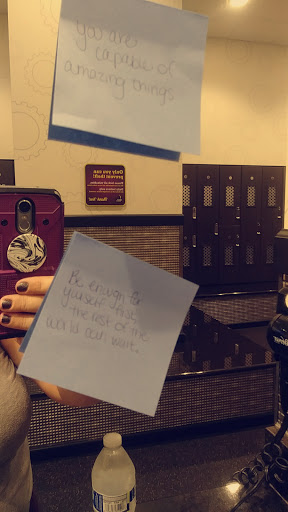 you are
capable of
amazing things
Only you can
prevent theft!
Thank You!
Be enough for
yourself first,
the rest of the
world can wait.